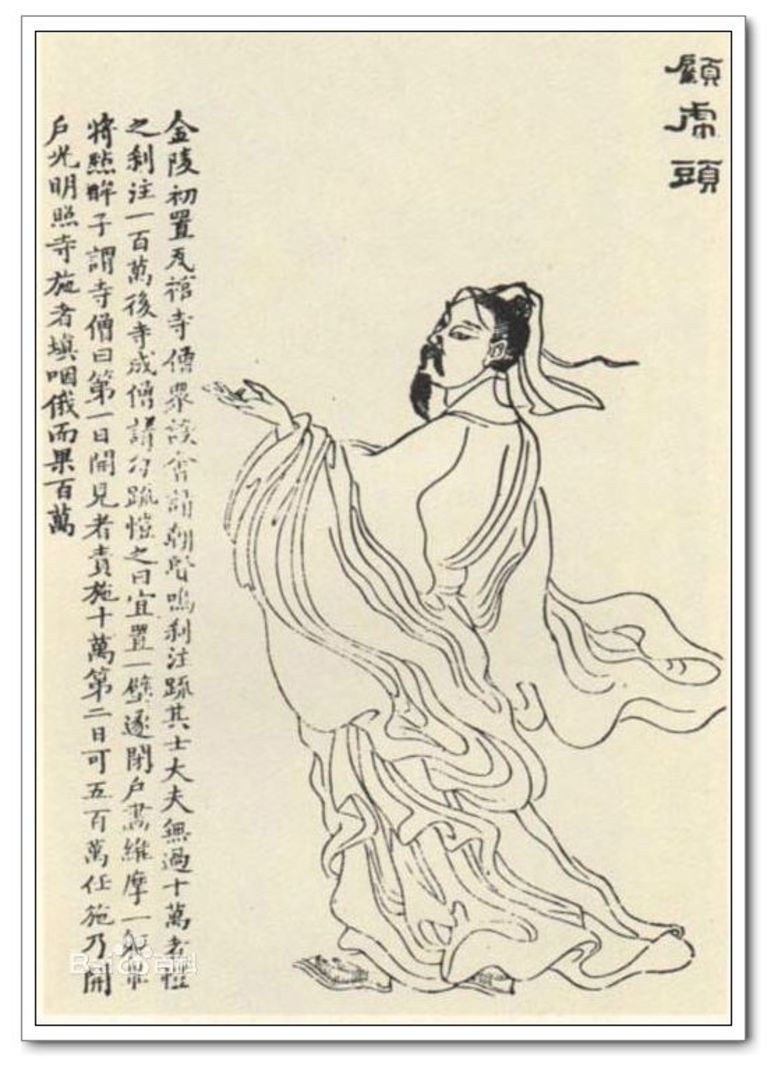 顧虎頭
金陵初置瓦棺寺僧眾設會請朝賢鳴刹注疏其士大夫無過十萬者愷
之刹注一百萬後寺成僧請勾疏愷之曰宜置一壁遂閉戶畫維摩一軀畢
將點眸子謂寺僧曰第一日開見者責施十萬第二日可五百萬任施乃開
戶光明照寺施者填咽俄而果百萬
Baidu百科